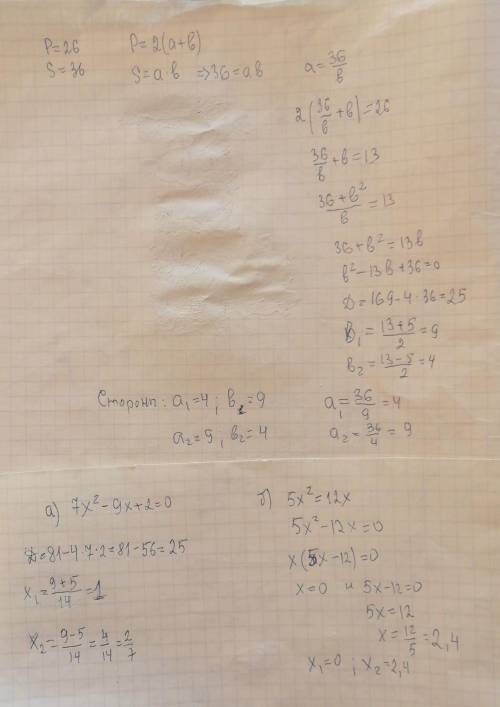 P=26
S=36
P=2(a+в)
S=a·в => 36=aв
a=36/в
2(36/в+в)=26
36/в+в=13
(36+в²)/в=13
36+в²=13в
в²-13в+36=0
D=169-4·36=25
в₁=(13+5)/2=9
в₂=(13-5)/2=4
a₁=36/9=4
a₂=36/4=9
Стороны: a₁=4; в₁=9
a₂=9; в₂=4
а) 7x²-9x+2=0
D=81-4·7·2=81-56=25
x₁=(9+5)/14=1
x₂=(9-5)/14=4/14=2/7
б) 5x²=12x
5x²-12x=0
x(5x-12)=0
x=0 и 5x-12=0
5x=12
x=12/5=2,4
x₁=0; x₂=2,4